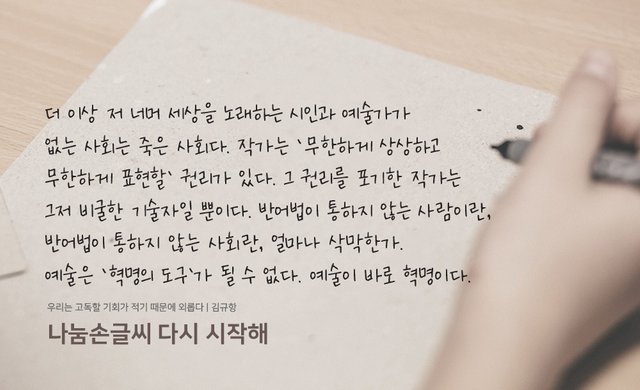 더 이상 저 너머 세상을 노래하는 시인과 예술가가
없는 사회는 죽은 사회다. 작가는 '무한하게 상상하고
무한하게 표현할' 권리가 있다. 그 권리를 포기한 작가는
그저 비굴한 기술자일 뿐이다. 반어법이 통하지 않는 사람이란,
반어법이 통하지 않는 사회란, 얼마나 삭막한가.
예술은 '혁명의 도구'가 될 수 없다. 예술이 바로 혁명이다.
우리는 고독할 기회가 적기 때문에 외롭다 | 김규항
나눔손글씨 다시 시작해